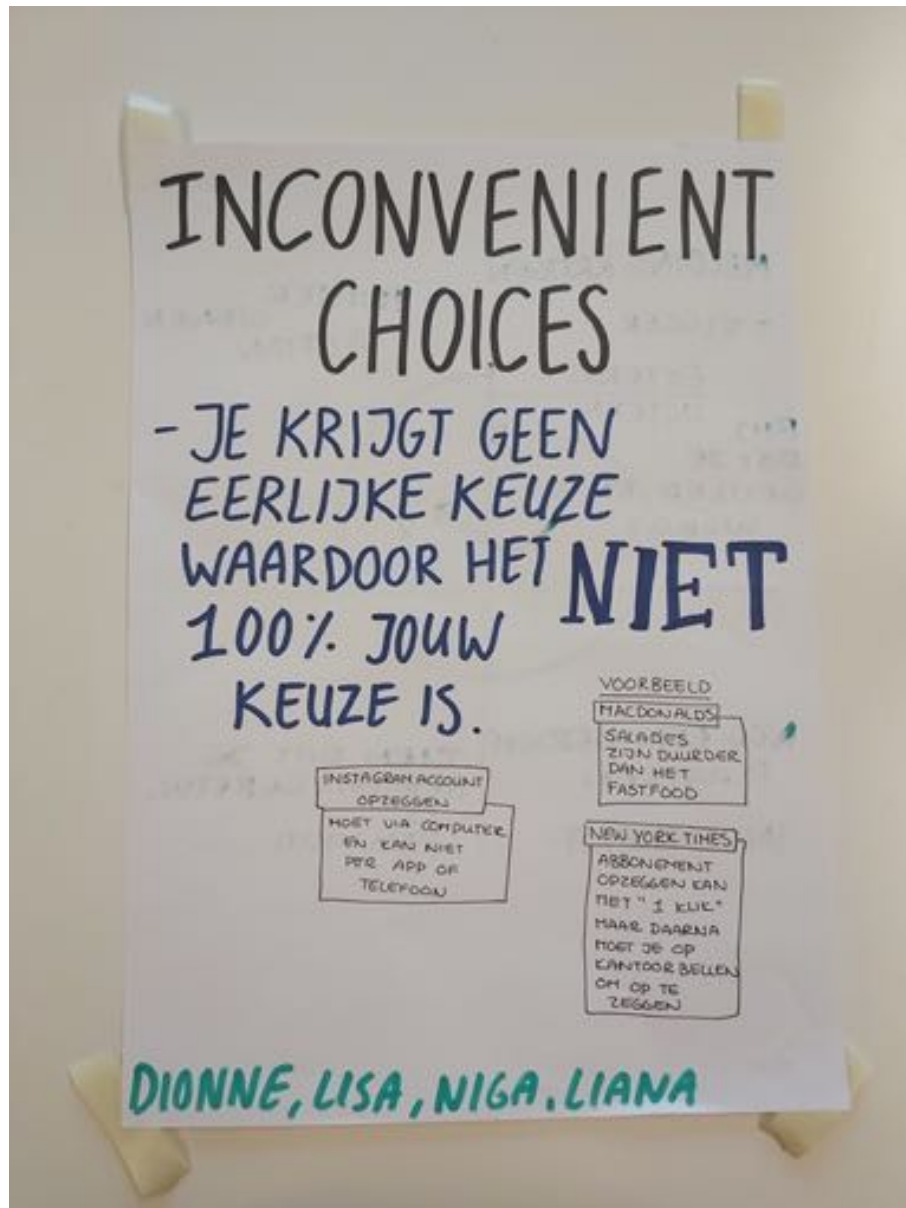 INCONVENIENT
CHOICES
- JE KRIJGT GEEN
EERLIJKE KEUZE
WAARDOOR HET NIET
100% JOUW
KEUZE IS.
VOORBEELD
MACDONALDS
SALADES
ZIJN DUURDER
DAN HET
FASTFOOD
INSTAGRAM ACCOUNT
OPZEGGEN
MOET VIA COMPUTER
EN KAN NIET
PER APP OF
TELEFOON
NEW YORK TIMES
ABBONEMENT
OPZEGGEN KAN
MET "1 KLIK"
MAAR DAARNA
MOET JE OP
KANTOOR BELLEN
OM OP TE
ZEGGEN
DIONNE, LISA, NIGA. LIANA